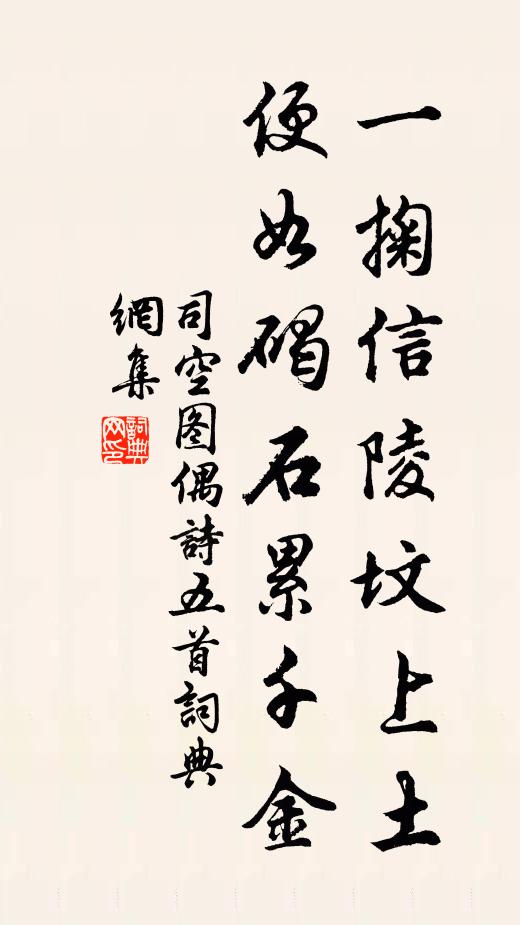 一掬信陵坟上土
便如碣石累千金
司空图偶詩五首詞典
網集
詞典
网印